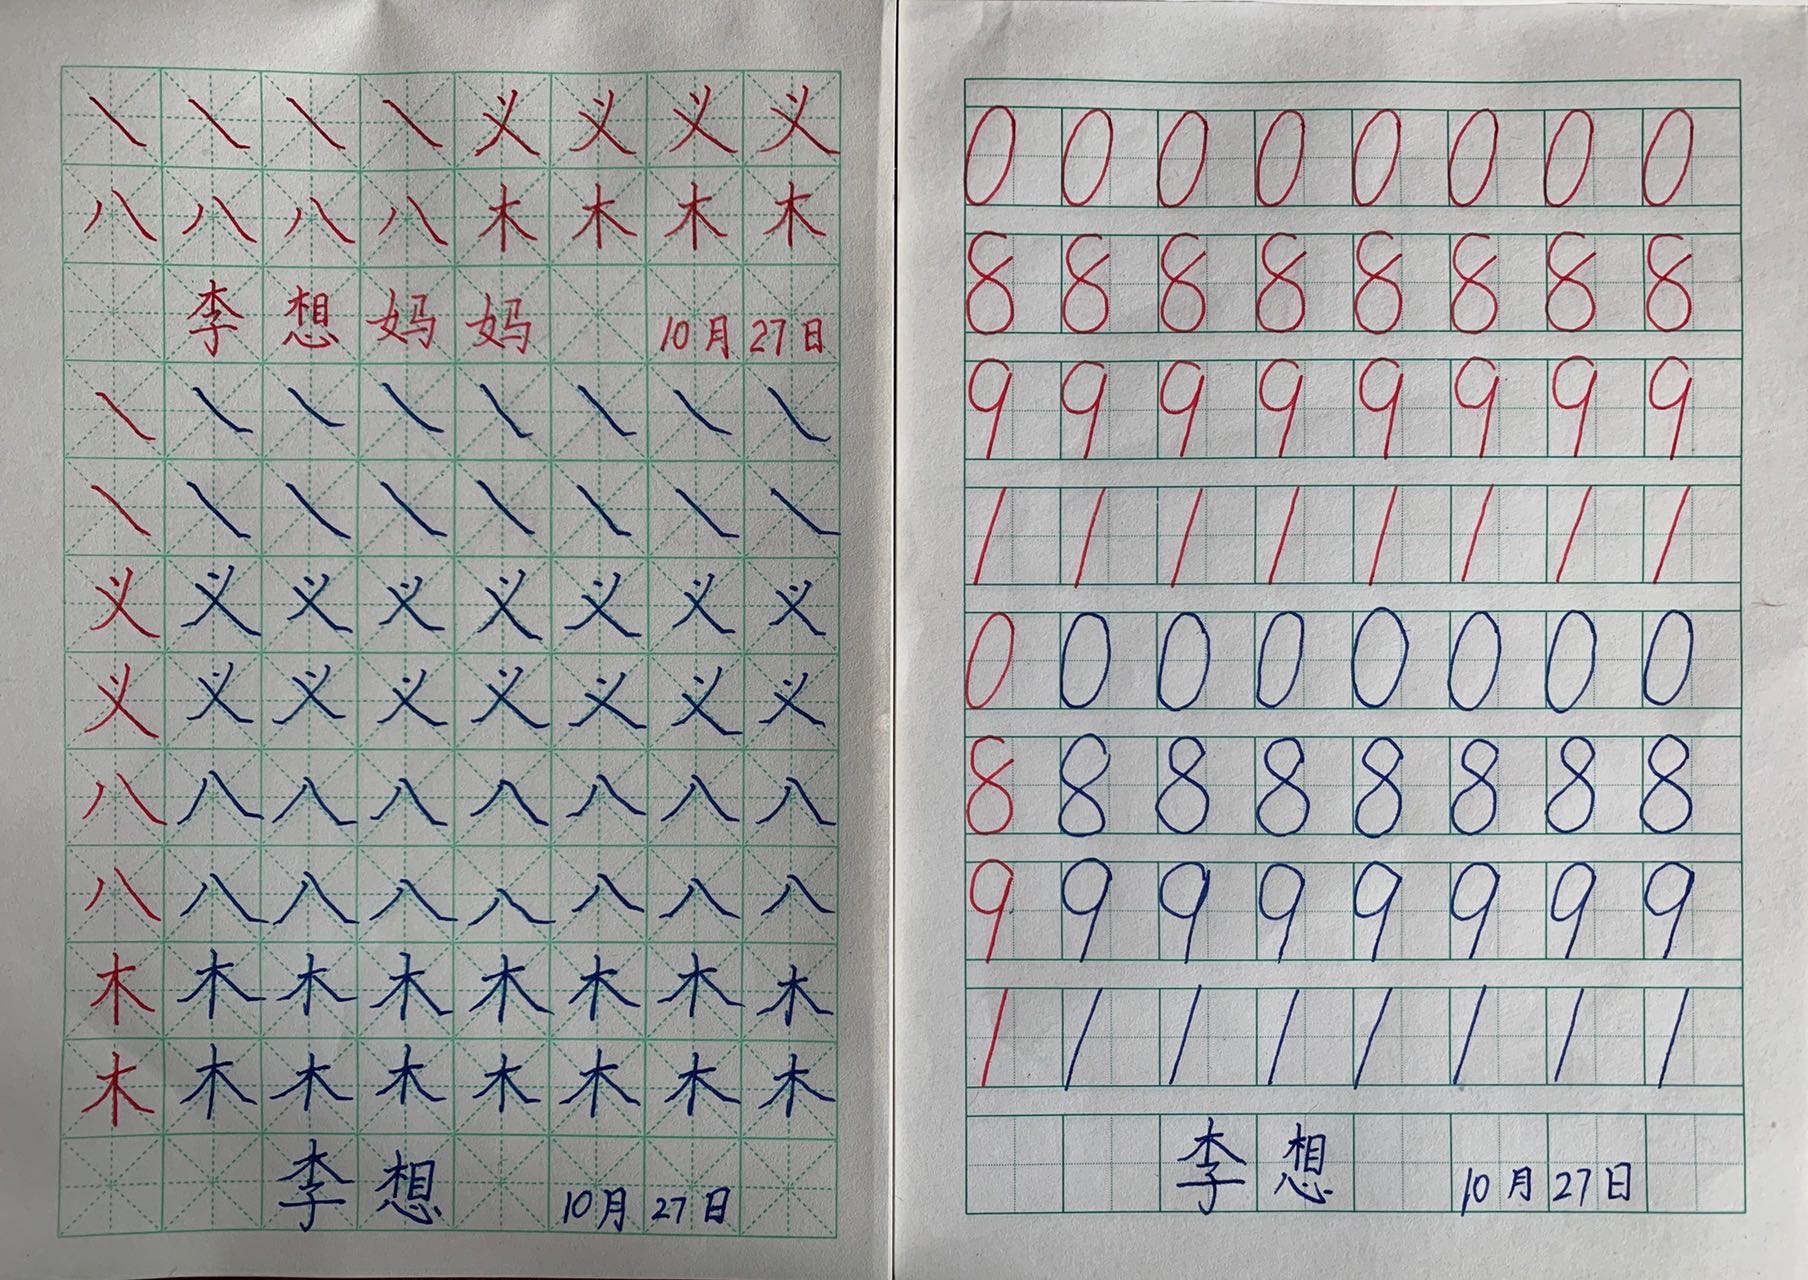 ㇏ ㇏ ㇏ ㇏ 义 义 义 义
八 八 八 八 木 木 木 木
李 想 妈 妈 10月27日
㇏ ㇏ ㇏ ㇏ ㇏ ㇏ ㇏ ㇏
㇏ ㇏ ㇏ ㇏ ㇏ ㇏ ㇏ ㇏
义 义 义 义 义 义 义 义
义 义 义 义 义 义 义 义
八 八 八 八 八 八 八 八
八 八 八 八 八 八 八 八
木 木 木 木 木 木 木 木
木 木 木 木 木 木 木 木
李 想 10月27日
0 0 0 0 0 0 0 0
8 8 8 8 8 8 8 8
9 9 9 9 9 9 9 9
1 1 1 1 1 1 1 1
0 0 0 0 0 0 0 0
8 8 8 8 8 8 8 8
9 9 9 9 9 9 9 9
1 1 1 1 1 1 1 1
李 想 10月27日